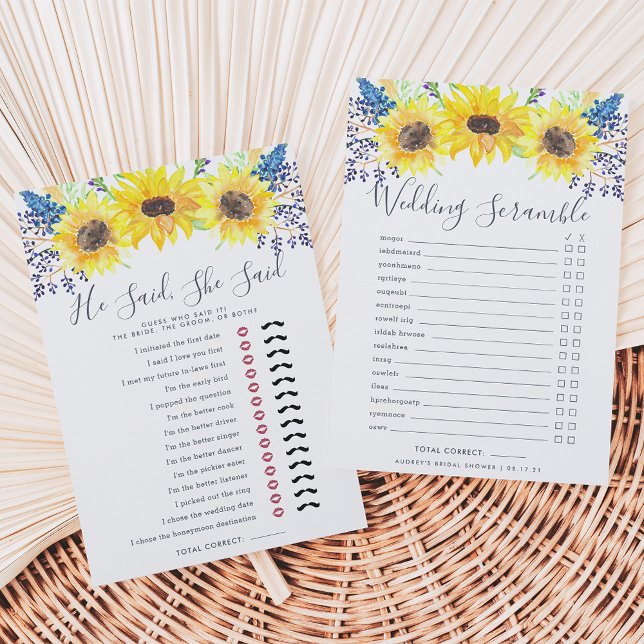 He Said, She Said
GUESS WHO SAID IT!
THE BRIDE, THE GROOM, OR BOTH?
I initiated the first date
I said I love you first
I met my future in-laws first
I'm the early bird
I popped the question
I'm the better cook
I'm the better driver
I'm the better singer
I'm the better dancer
I'm the pickier eater
I'm the better listener
I picked out the ring
I chose the wedding date
I chose the honeymoon destination
TOTAL CORRECT:
Wedding Scramble
mogor ✓ X
iebdmaisrd
yoonhmeno
rgrtisye
ouqeubt
ecntroepi
rowelf irlg
irldab hrwose
roslahrea
inrsg
oswlefr
ileas
hprehorgoatp
ryemnoce
oswv
TOTAL CORRECT:
AUDREY'S BRIDAL SHOWER | 05.17.21